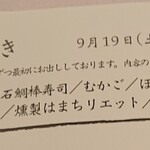 き　9月19日(土
ずつ最初にお出ししております。内容の
石鯛棒寿司／むかご／ほ
／燻製はまちリエット／